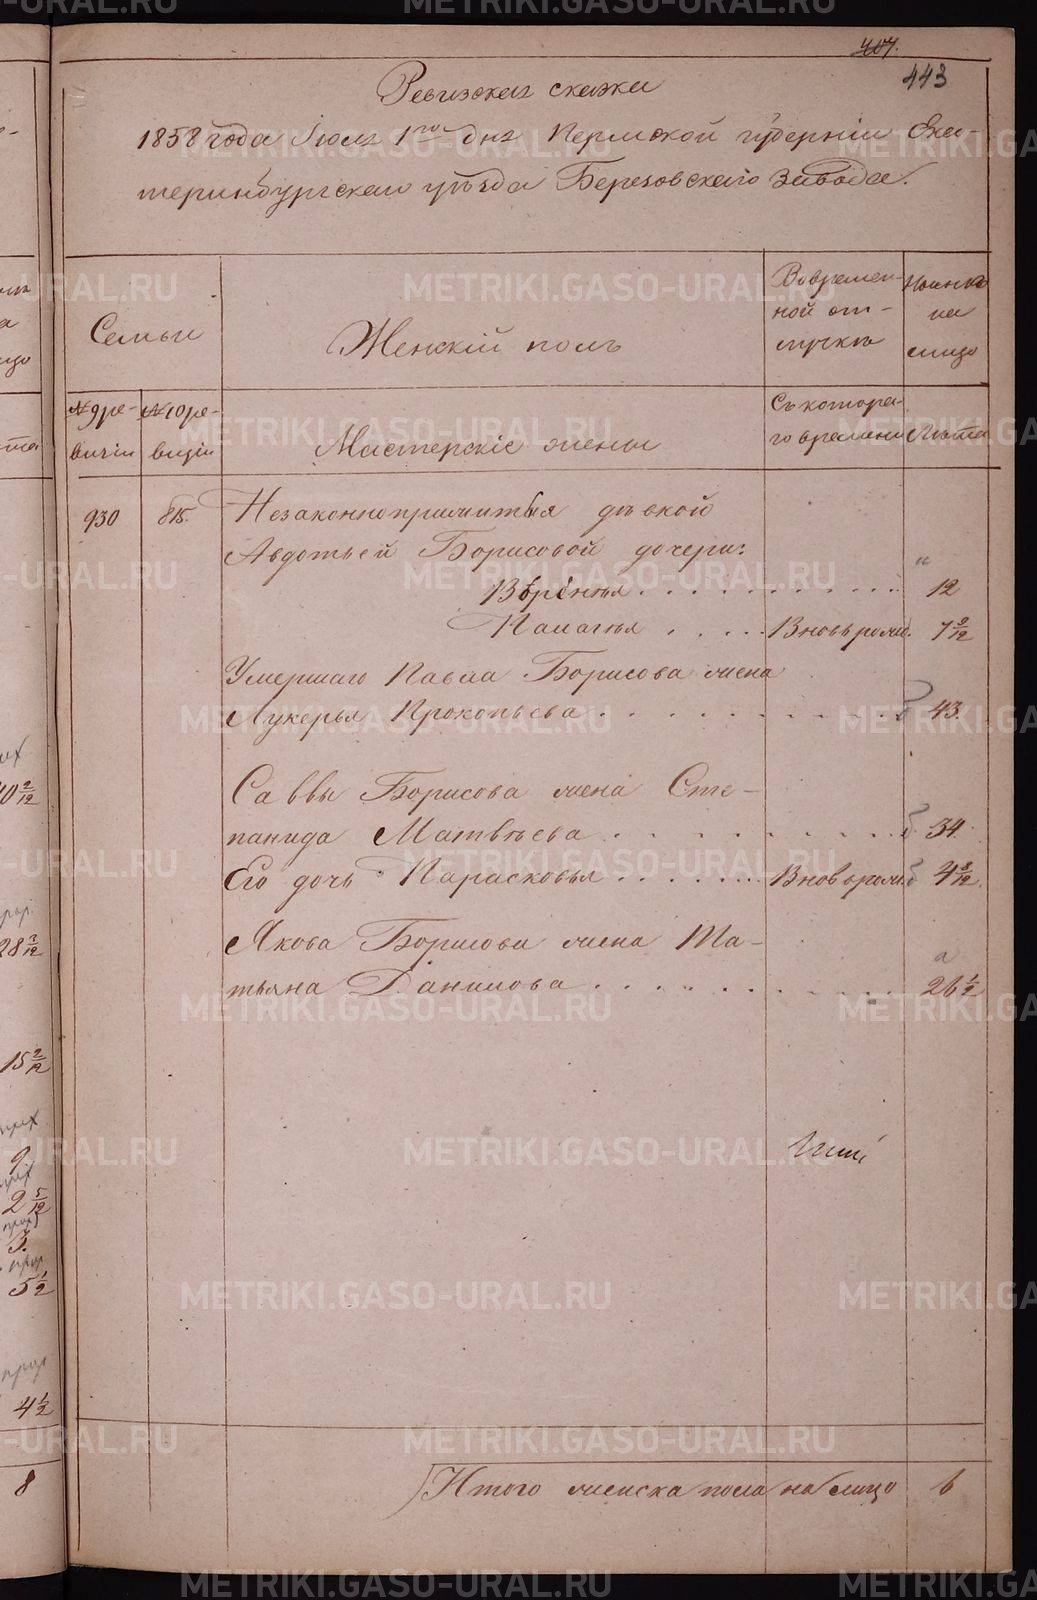 407.
443
Ревизская сказка
1858 года Июля 1го дня Пермской губерніи Ека-
теринбургскаго уѣзда Березовскаго завода.
Семьи
Женскій полъ
Во времен-
ной от-
лучкѣ
Нынѣ
на
лицо
№ 9 ре-
визіи
№ 10 ре-
визіи
Мастерскіе жены
Съ которa-
го времени
Лѣта
930
815.
Незаконноприжитыя дѣвкой
Авдотьей Борисовой дочери:
12
Пелагья . . . . . Вновь рожд. 7 2/12
Умершаго Павла Борисова жена
Лукерья Прокопьева . . . . . . . . . 43.
Саввы Борисова жена Сте-
панида Матвѣева . . . . . . . . . 34.
Его дочь Парасковья . . . . . . . Вновь рожд. 4 2/12.
Якова Борисова жена Та-
тьяна Данилова . . . . . . . . . 26 1/2
Итого женска пола на лицо 6
METRIKI.GASO-URAL.RU